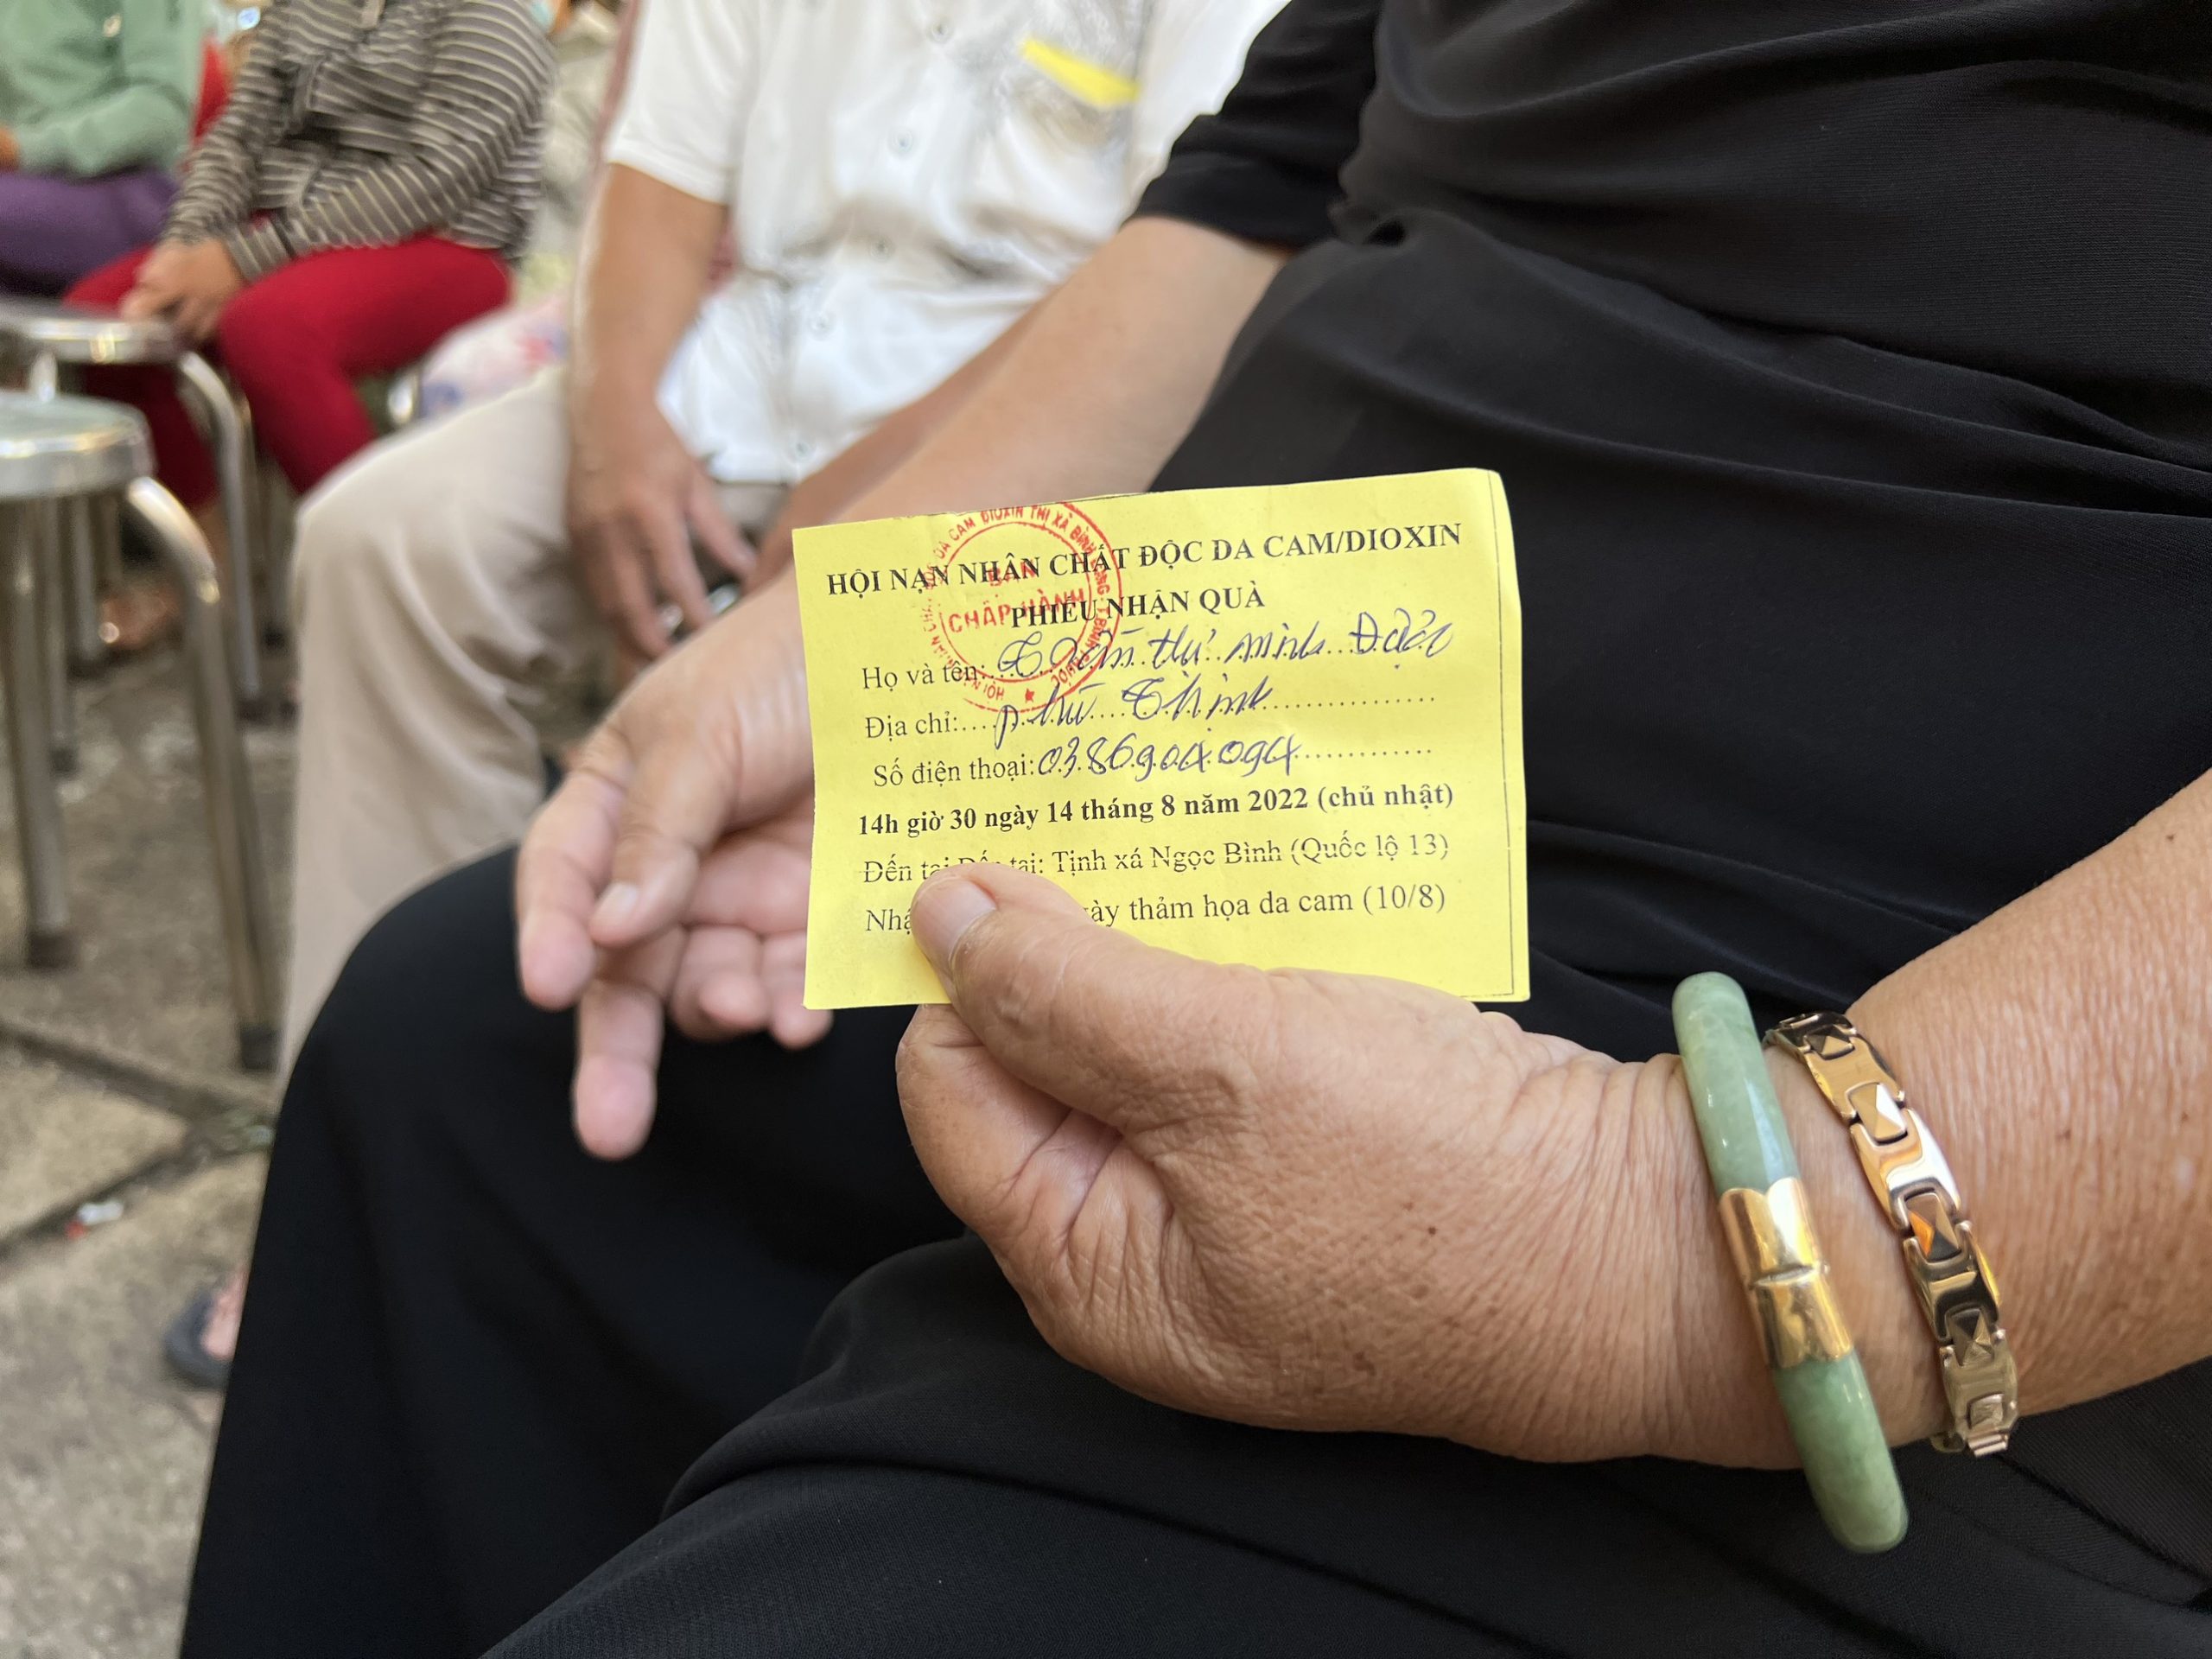 HỘI NẠN NHÂN CHẤT ĐỘC DA CAM/DIOXIN
PHIẾU NHẬN QUÀ
Họ và tên: thị minh
Địa chỉ: phú Thịnh
Số điện thoại: 0386904094
14h giờ 30 ngày 14 tháng 8 năm 2022 (chủ nhật)
Đến tại: Tịnh xá Ngọc Bình (Quốc lộ 13)
thảm họa da cam (10/8)
DA CAM DIOXIN THỊ XÃ BÌNH LONG T.BÌNH PHƯỚC
BAN
CHẤP HÀNH